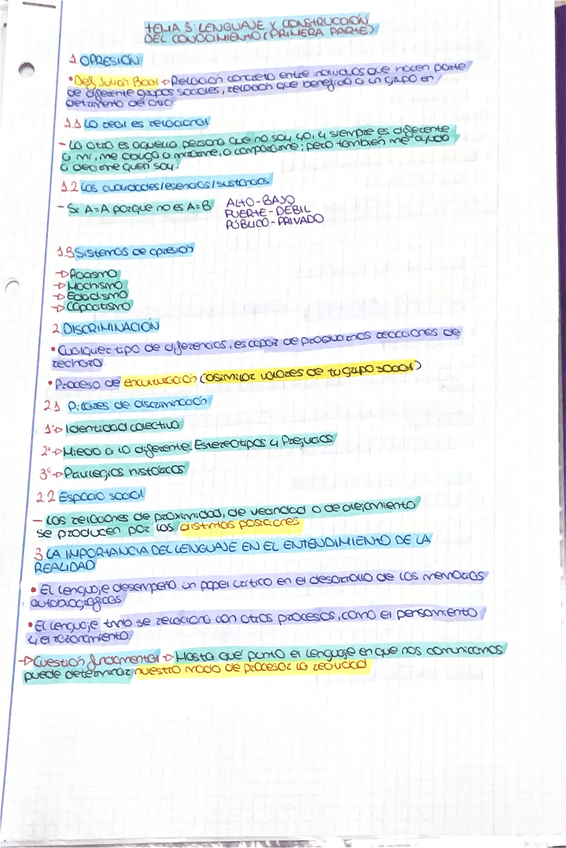 TEMA 3 LENGUAJE Y CONSTRUCCIÓN
DEL CONOCIMIENTO (PRIMERA PARTE)
1 OPRESIÓN
• Def Julian Boal → Relación concreta entre individuos que hacen parte
de diferente grupos sociales, relación que beneficia a un grupo en
detrimento del otro
1.1 Lo real es relacional
- Lo otro es aquella persona que no soy yo, y siempre es diferente
a mí, me obliga a medirme, o compararme; pero también me ayuda
a decirme quien soy.
1.2 Las cualidades/esencias/sustancias
- Si A=A porque no es A=B ALTO-BAJO
FUERTE-DÉBIL
PÚBLICO-PRIVADO
1.3 Sistemas de opresión
→ Racismo
→ Machismo
→ Edadismo
→ Capacitismo
2 DISCRIMINACIÓN
• Cualquier tipo de diferencias, es capaz de producirnos reacciones de
rechazo
• Proceso de enculturación (asimilar valores de tu grupo social)
2.1 Pilares de discriminación
1º → Identidad colectiva
2º → Miedo a lo diferente. Estereotipos y Prejuicios
3º → Privilegios históricos
2.2 Espacio social
- Las relaciones de proximidad, de vecindad o de alejamiento
se producen por las distintas posiciones
3 LA IMPORTANCIA DEL LENGUAJE EN EL ENTENDIMIENTO DE LA
REALIDAD
• El lenguaje desempeña un papel crítico en el desarrollo de las memorias
autobiográficas
• El lenguaje tmb se relaciona con otros procesos, como el pensamiento
y el razonamiento
→ Cuestión fundamental → Hasta qué punto el lenguaje en que nos comunicamos
puede determinar nuestro modo de procesar la realidad